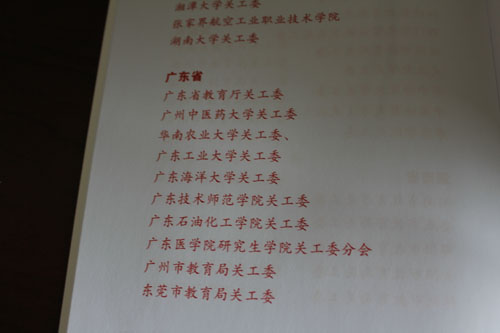 湘潭大学关工委
张家界航空工业职业技术学院
湖南大学关工委
广东省
广东省教育厅关工委
广州中医药大学关工委
华南农业大学关工委、
广东工业大学关工委
广东海洋大学关工委
广东技术师范学院关工委
广东石油化工学院关工委
广东医学院研究生学院关工委分会
广州市教育局关工委
东莞市教育局关工委